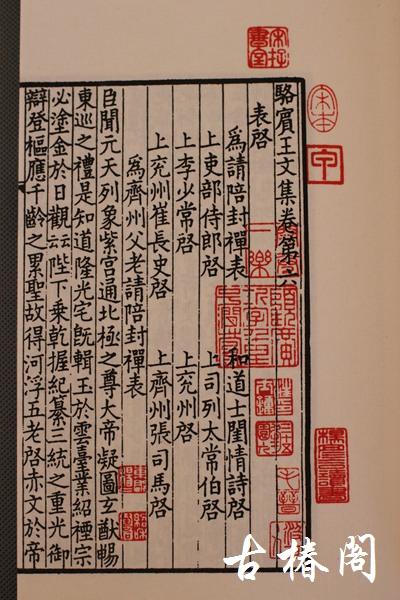 宋本
甲
駱賓王文集卷第六
表啓
為請陪封禪表　和道士閨情詩啓
上吏部侍郎啓　上司列太常伯啓
上李少常啓　上兗州啓
上兗州崔長史啓　上齊州張司馬啓
為齊州父老請陪封禪表
臣聞元天列象紫宮通北極之尊大帝凝圖玄猷暢
東巡之禮是知道隆光宅旣輯玉於雲臺業紹禋宗
必塗金於日觀云云陛下乘乾握紀纂三統之重光御
辯登樞應千齡之累聖故得河浮五老啓赤文於帝
古椿閣